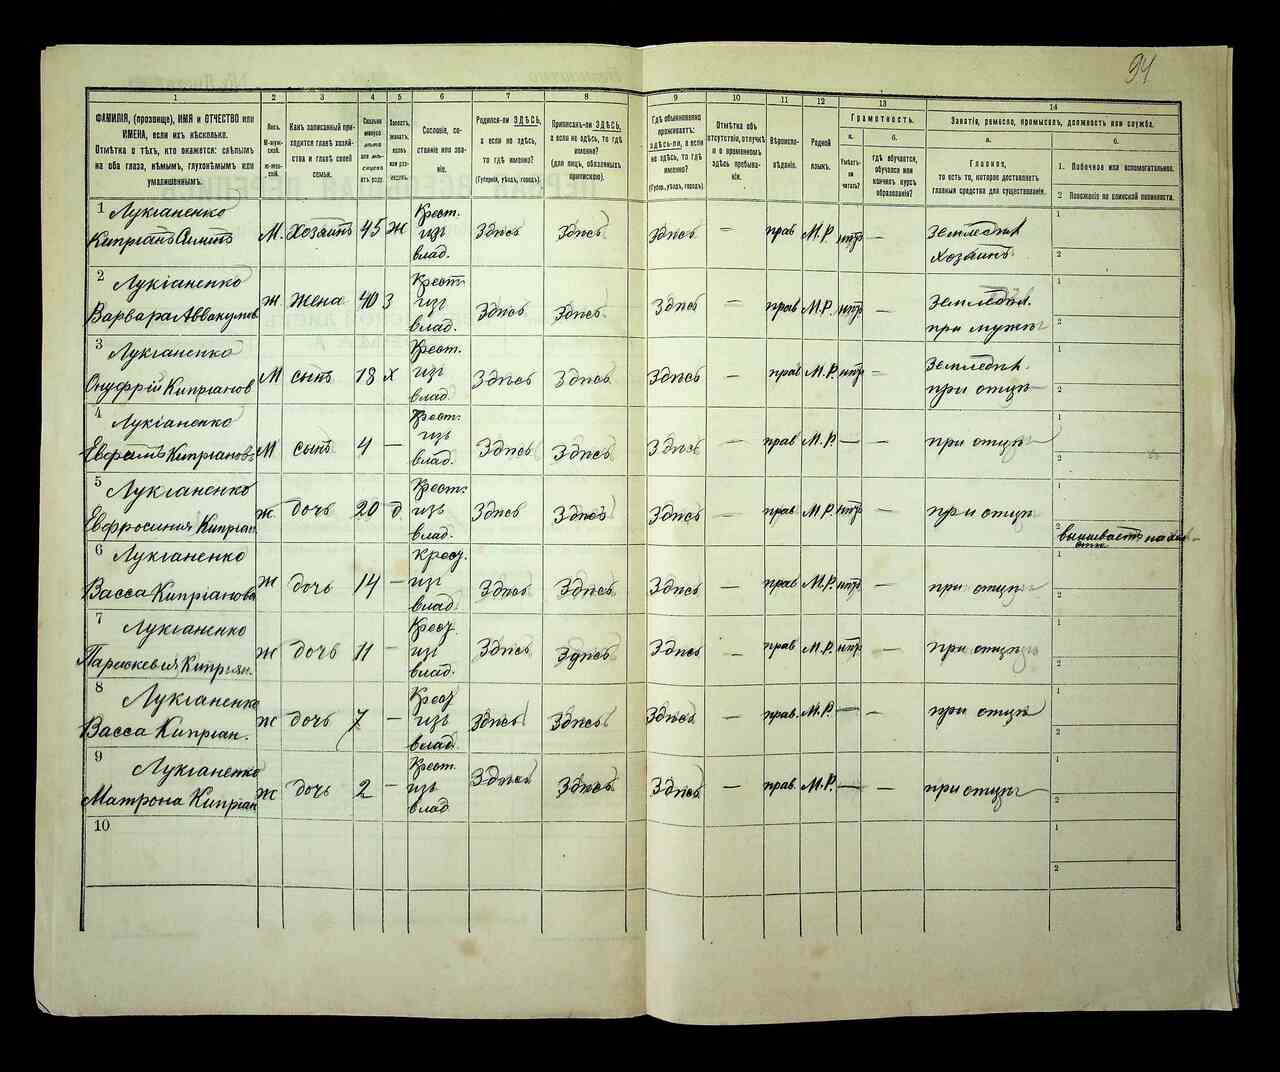 94
1
2
3
4
5
6
7
8
9
10
11
12
13
14
ФАМИЛІЯ, (прозвище), ИМЯ и ОТЧЕСТВО или
ИМЕНА, если ихъ нѣсколько.
Отмѣтка о тѣхъ, кто окажется: слѣпымъ
на оба глаза, нѣмымъ, глухонѣмымъ или
умалишеннымъ.
Полъ.
М-муж-
ской.
ж-жен-
скій.
Какъ записанный при-
ходится главѣ хозяй-
ства и главѣ своей
семьи.
Сколько
минуло
лѣтъ
или мѣ-
сяцевъ
отъ роду.
Холостъ,
женатъ,
вдовъ
или раз-
веденъ.
Сословіе, со-
стояніе или зва-
ніе.
Родился-ли ЗДѢСЬ,
а если не здѣсь,
то гдѣ именно?
(Губернія, уѣздъ, городъ).
Приписанъ-ли ЗДѢСЬ,
а если не здѣсь, то гдѣ
именно?
(для лицъ, обязанныхъ
припискою).
Гдѣ обыкновенно
проживаетъ:
здѣсь-ли, а если
не здѣсь, то гдѣ
именно?
(Губер., уѣздъ, городъ).
Отмѣтка объ
отсутствіи, отлучкѣ
и о временномъ
здѣсь пребыва-
ніи.
Вѣроиспо-
вѣданіе.
Родной
языкъ.
Грамотность.
а.
Умѣетъ-
ли
читать?
б.
гдѣ обучается,
обучался или
кончилъ курсъ
образованія?
Занятія, ремесло, промыселъ, должность или служба.
а.
Главное,
то есть то, которое доставляетъ
главныя средства для существованія.
б.
1. Побочное или вспомогательное.
2. Положеніе по воинской повинности.
1 Лукіаненко
Кипріанъ М. Хозяинъ 45 ж Крест. изъ влад. Здѣсь Здѣсь Здѣсь — прав М.Р. нѣтъ — Земледѣл. Хозяинъ 1 2
2 Лукіаненко
Варвара Аввакумов ж жена 40 З Крест. изъ влад. Здѣсь Здѣсь Здѣсь — прав М.Р. нѣтъ — Земледѣл. при мужѣ 1 2
3 Лукіаненко
Онуфрій Кипріанов М сынъ 18 х Крест. изъ влад. Здѣсь Здѣсь Здѣсь — прав М.Р. нѣтъ — Земледѣл. при отцѣ 1 2
4 Лукіаненко
Кипріановъ М сынъ 4 — Крест. изъ влад. Здѣсь Здѣсь Здѣсь — прав М.Р. — — при отцѣ 1 2
5 Лукіаненко
Евфросинія Кипріан ж дочь 20 д Крест. изъ влад. Здѣсь Здѣсь Здѣсь — прав М.Р. нѣтъ — при отцѣ 1 2 вышиваетъ на
6 Лукіаненко
Васса Кипріанова ж дочь 14 — Крест. изъ влад. Здѣсь Здѣсь Здѣсь — прав М.Р. нѣтъ — при отцѣ 1 2
7 Лукіаненко
Параскевія Кипріян. ж дочь 11 — Крест. изъ влад. Здѣсь Здѣсь Здѣсь — прав М.Р. нѣтъ — при отцѣ 1 2
8 Лукіаненко
Васса Кипріан. ж дочь 7 — Крест. изъ влад. Здѣсь Здѣсь Здѣсь — прав. М.Р. — — при отцѣ 1 2
9 Лукіаненко
Матрона Кипріан ж дочь 2 — Крест. изъ влад Здѣсь Здѣсь Здѣсь — прав. М.Р. — — при отцѣ 1 2
10 1 2